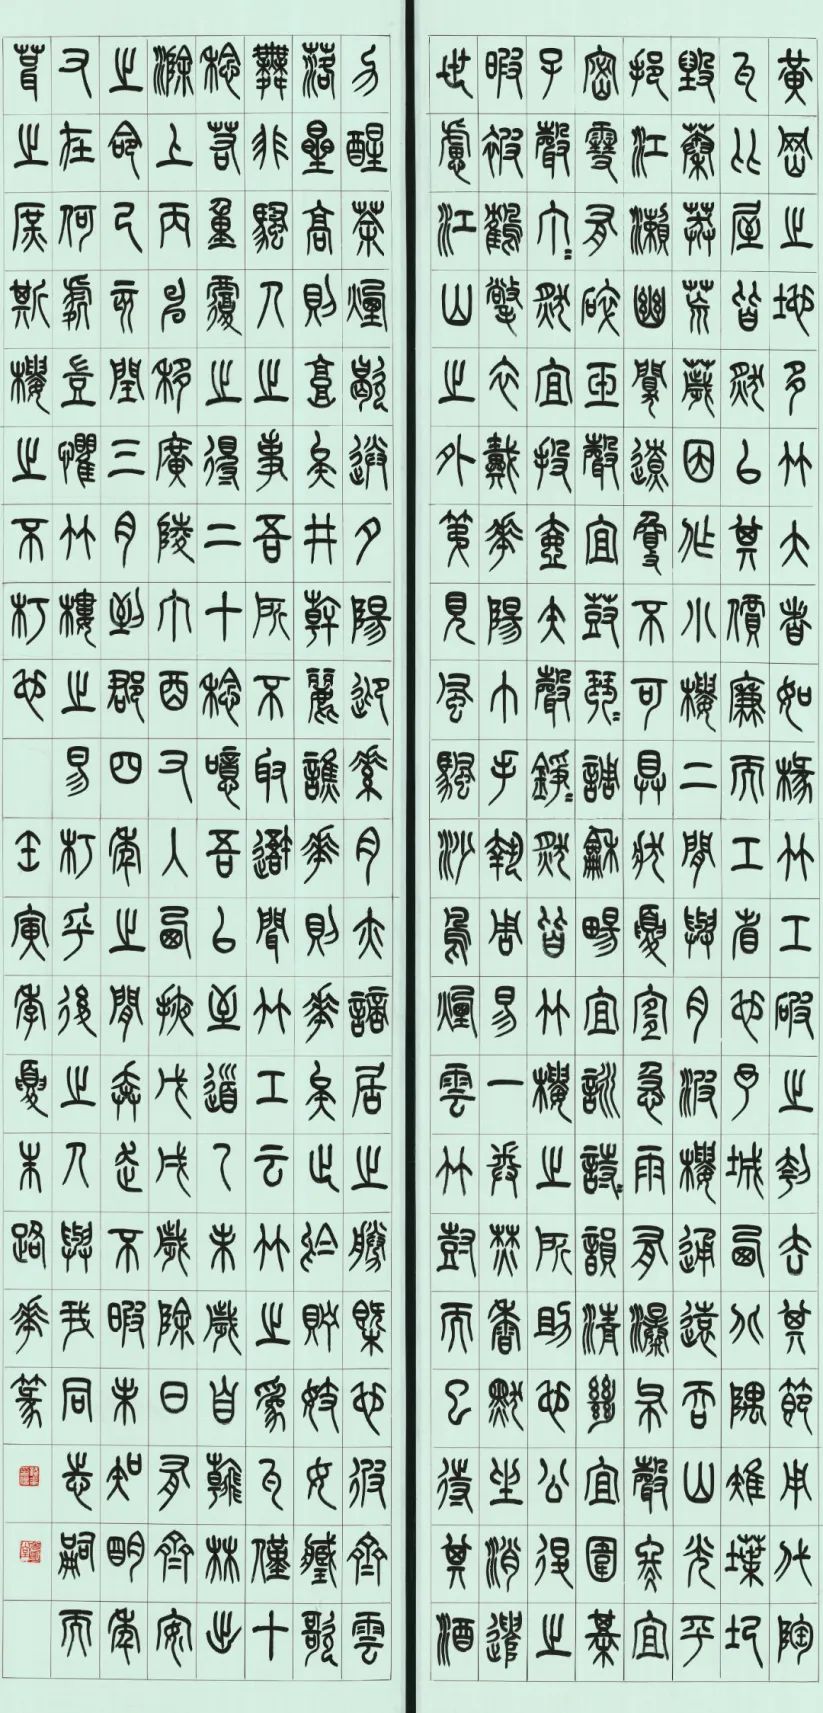 黃岡之地多竹大者如椽竹工破之刳去其節用代陶
瓦比屋皆然以其價廉而工省也予城西北隅雉堞圮
毀蓁莽荒穢因作小樓二間與月波樓通遠吞山光平
挹江瀨幽闃遼夐不可具狀夏宜急雨有瀑布聲冬宜
密雪有碎玉聲宜鼓琴琴調龢暢宜詠詩詩韻清絕宜圍棊
子聲丁丁然宜投壺矢聲錚錚然皆竹樓之所助也公退之
暇被鶴氅衣戴華陽巾手執周易一卷焚香默坐消遣
世慮江山之外第見風帆沙鳥煙雲竹樹而已待其酒
力醒茶煙歇送夕陽迎素月亦謫居之勝概也彼齊雲
落星高則高矣井幹麗譙華則華矣止於貯妓女藏歌
舞非騷人之事吾所不取吾聞竹工云竹之為瓦僅十
稔若重覆之得二十稔噫吾以至道乙未歲自翰林出
滁上丙申移廣陵丁酉又入西掖戊戌歲除日有齊安
之命己亥閏三月到郡四年之間奔走不暇未知明年
又在何處豈懼竹樓之易朽乎後之人與我同志嗣而
葺之庶斯樓之不朽也 壬寅年夏末路華篆